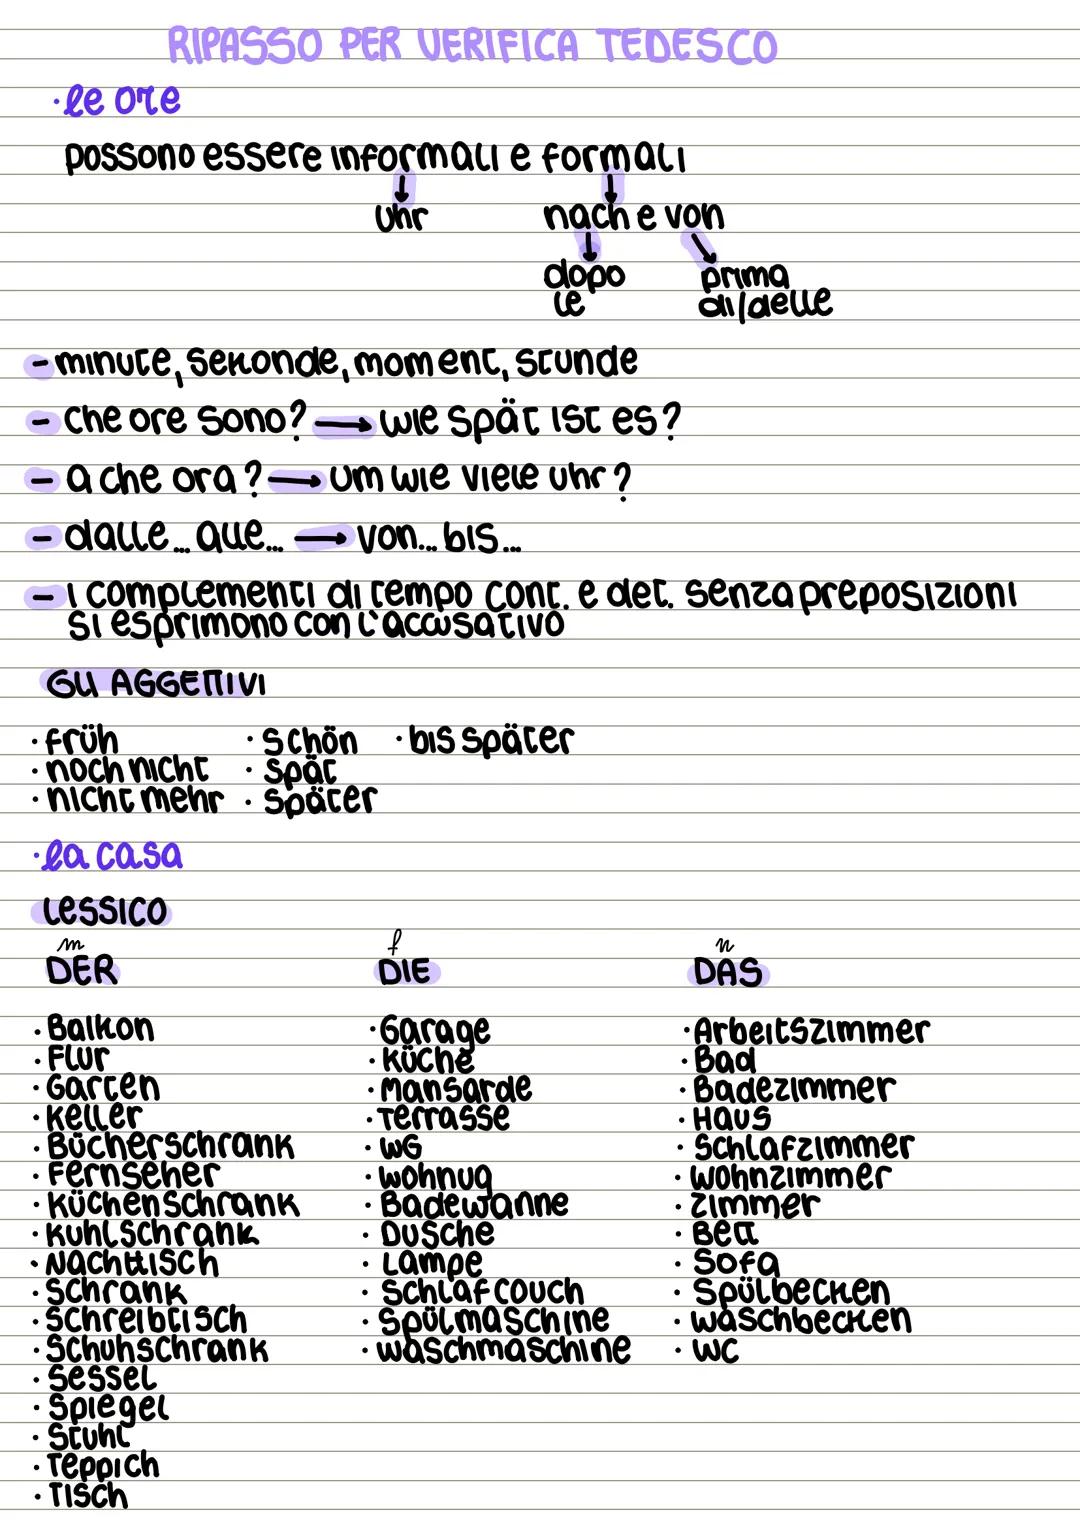 RIPASSO PER VERIFICA TEDESCO
·le ore
possono essere informali e formali
uhr nach e von
dopo prima
le di/delle
- minute, sekonde, moment, stunde
- che ore sono? → wie spät ist es?
- a che ora? → um wie viele uhr?
- dalle... alle... → von... bis...
- i complementi di tempo cont. e det. senza preposizioni
si esprimono con l'accusativo
GLI AGGETTIVI
· früh · schön · bis später
· noch nicht · spät
· nicht mehr · später
·la casa
LESSICO
m f n
DER DIE DAS
· Balkon · Garage · Arbeitszimmer
· Flur · Küche · Bad
· Garten · Mansarde · Badezimmer
· Keller · Terrasse · Haus
· Bücherschrank · WG · Schlafzimmer
· Fernseher · Wohnug · Wohnzimmer
· Küchenschrank · Badewanne · Zimmer
· Kuhlschrank · Dusche · Bett
· Nachttisch · Lampe · Sofa
· Schrank · Schlafcouch · Spülbecken
· Schreibtisch · Spülmaschine · Waschbecken
· Schuhschrank · Waschmaschine · WC
· Sessel
· Spiegel
· Stuhl
· Teppich
· Tisch